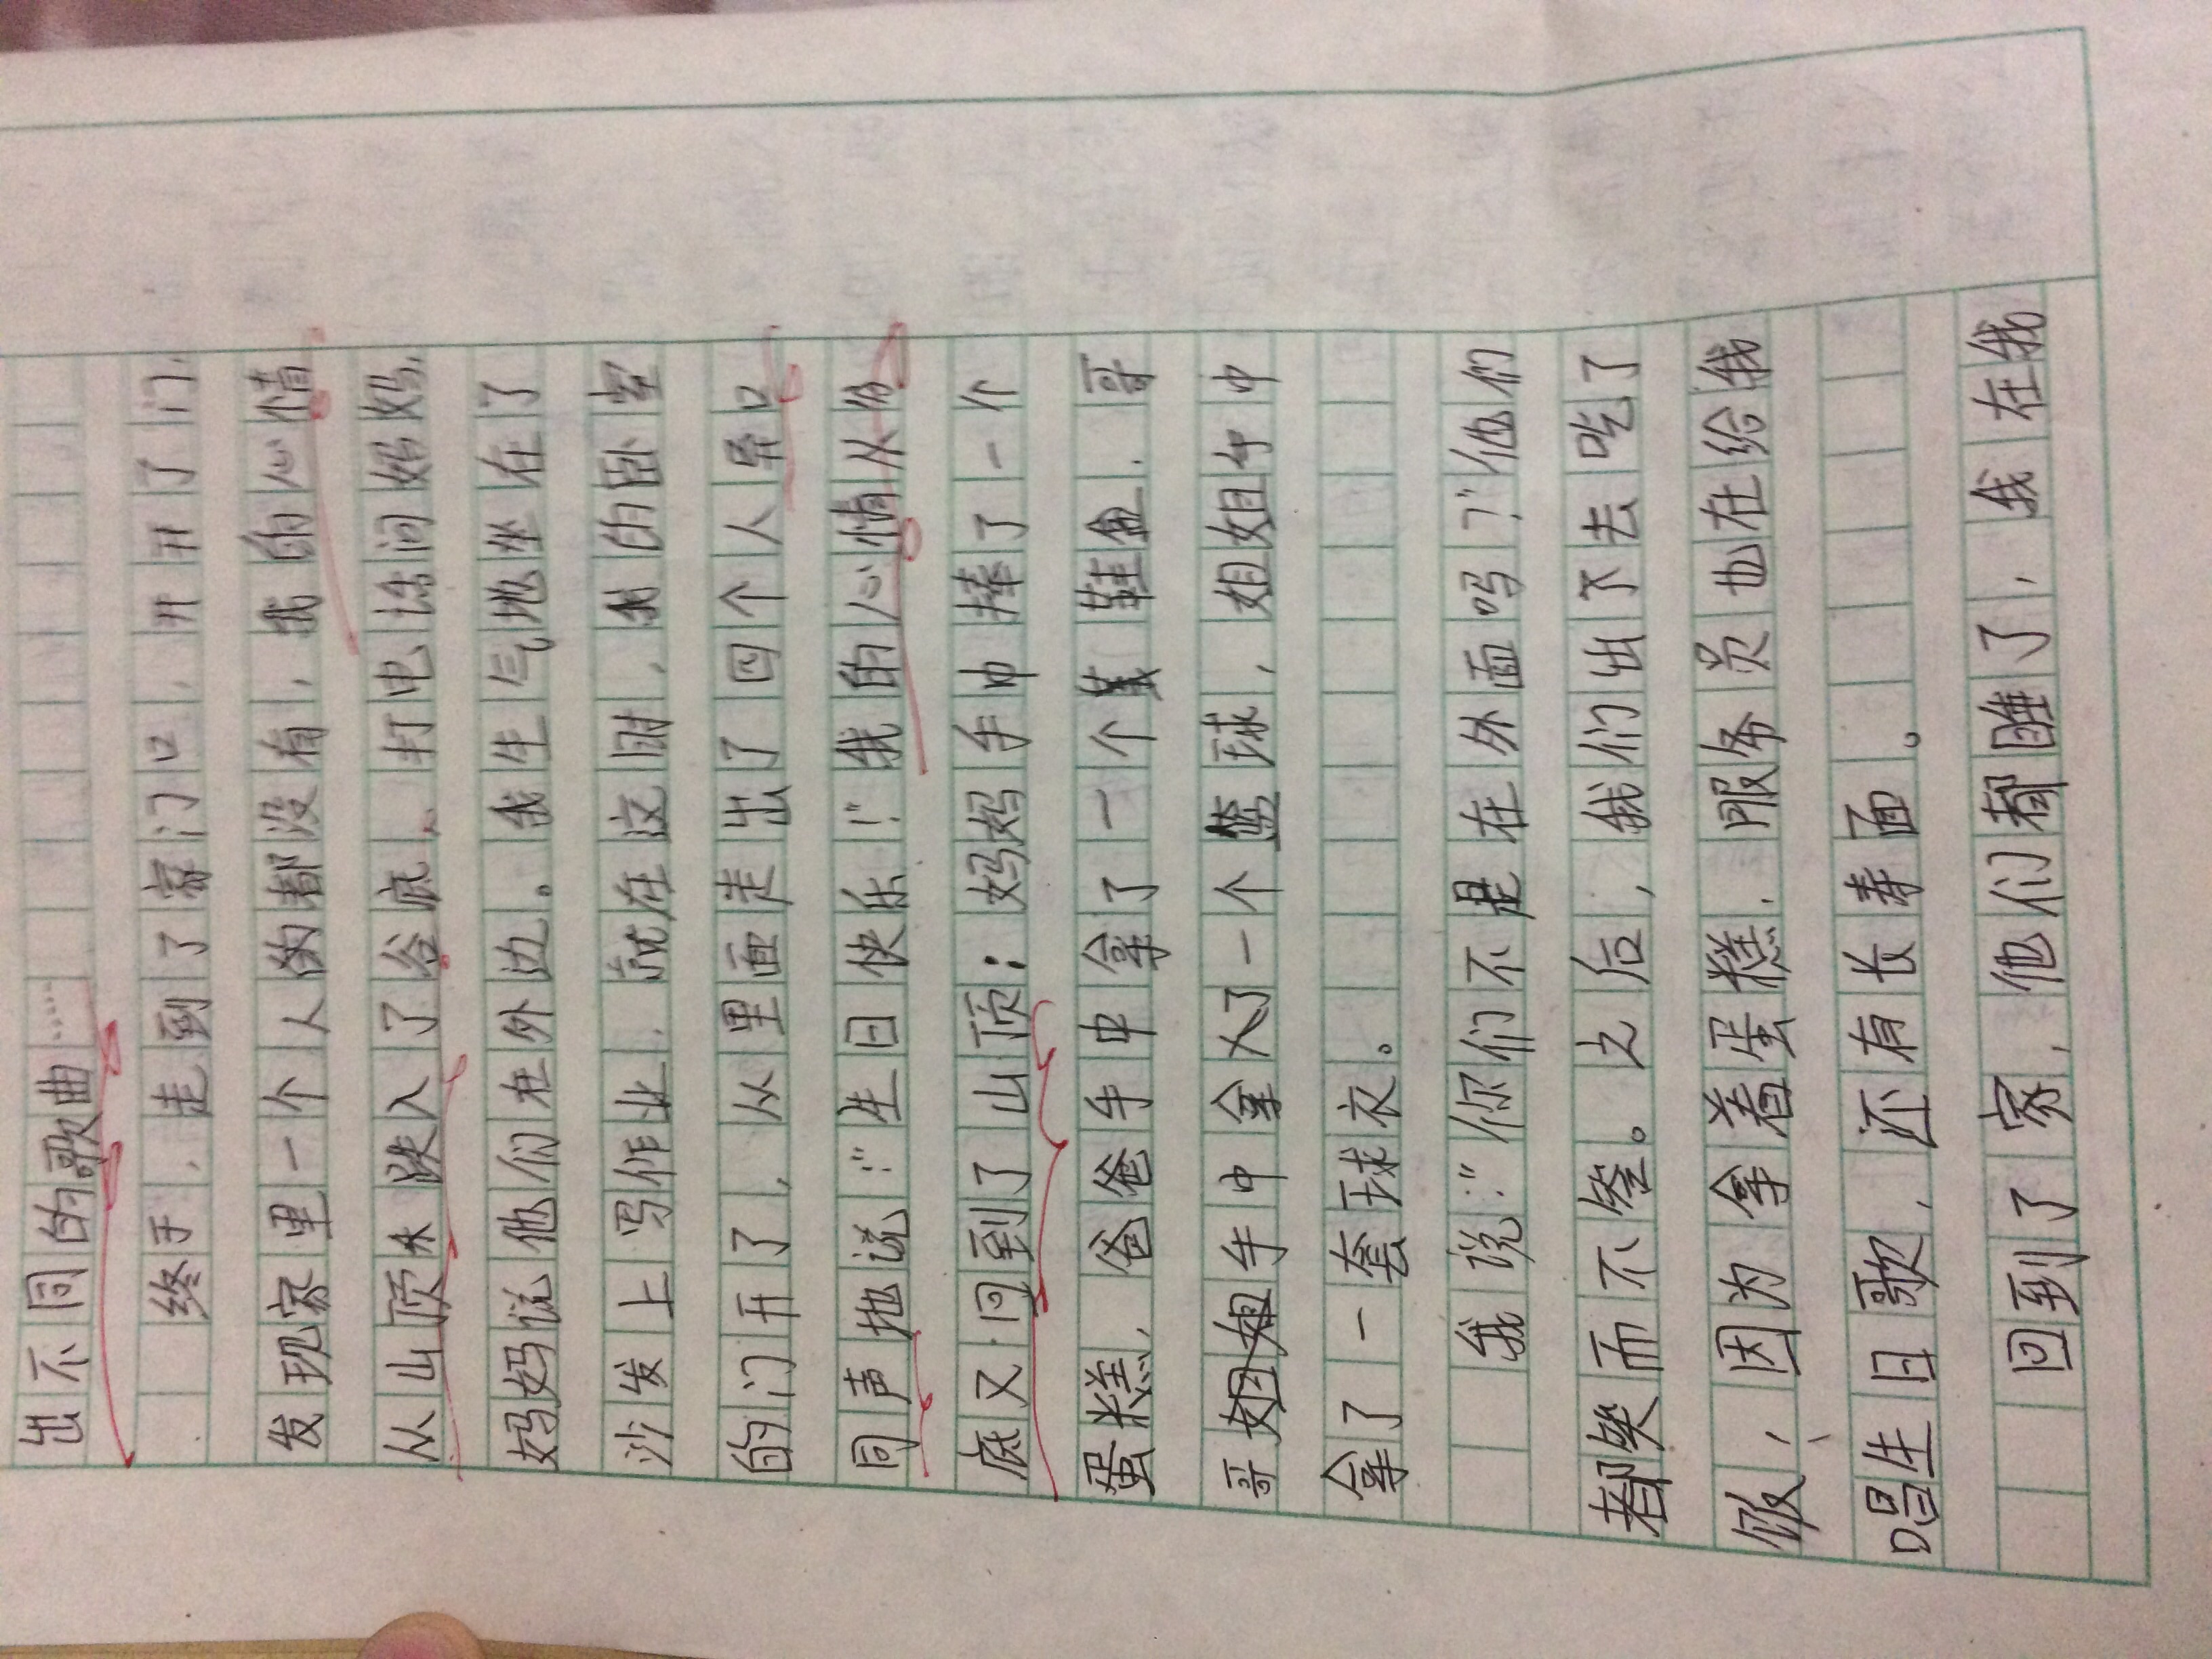 出不同的歌曲……
终于，走到了家门口，开开了门，
发现家里一个人的都没有，我的心情
从山顶水跌入了谷底，打电话问妈妈，
妈妈说他们在外边。我生气地坐在了
沙发上写作业，就在这时，我的卧室
的门开了，从里面走出了四个人异口
同声地说：“生日快乐！”我的心情从谷
底又回到了山顶：妈妈手中捧了一个
蛋糕，爸爸手中拿了一个鞋盒，哥
哥手中拿了一个篮球，姐姐手中
拿了一套球衣。
我说：“你们不是在外面吗？”他们
都笑而不答。之后，我们出了去吃了
饭，因为拿着蛋糕，服务员也在给我
唱生日歌，还有长寿面。
回到了家，他们都睡了，我在我